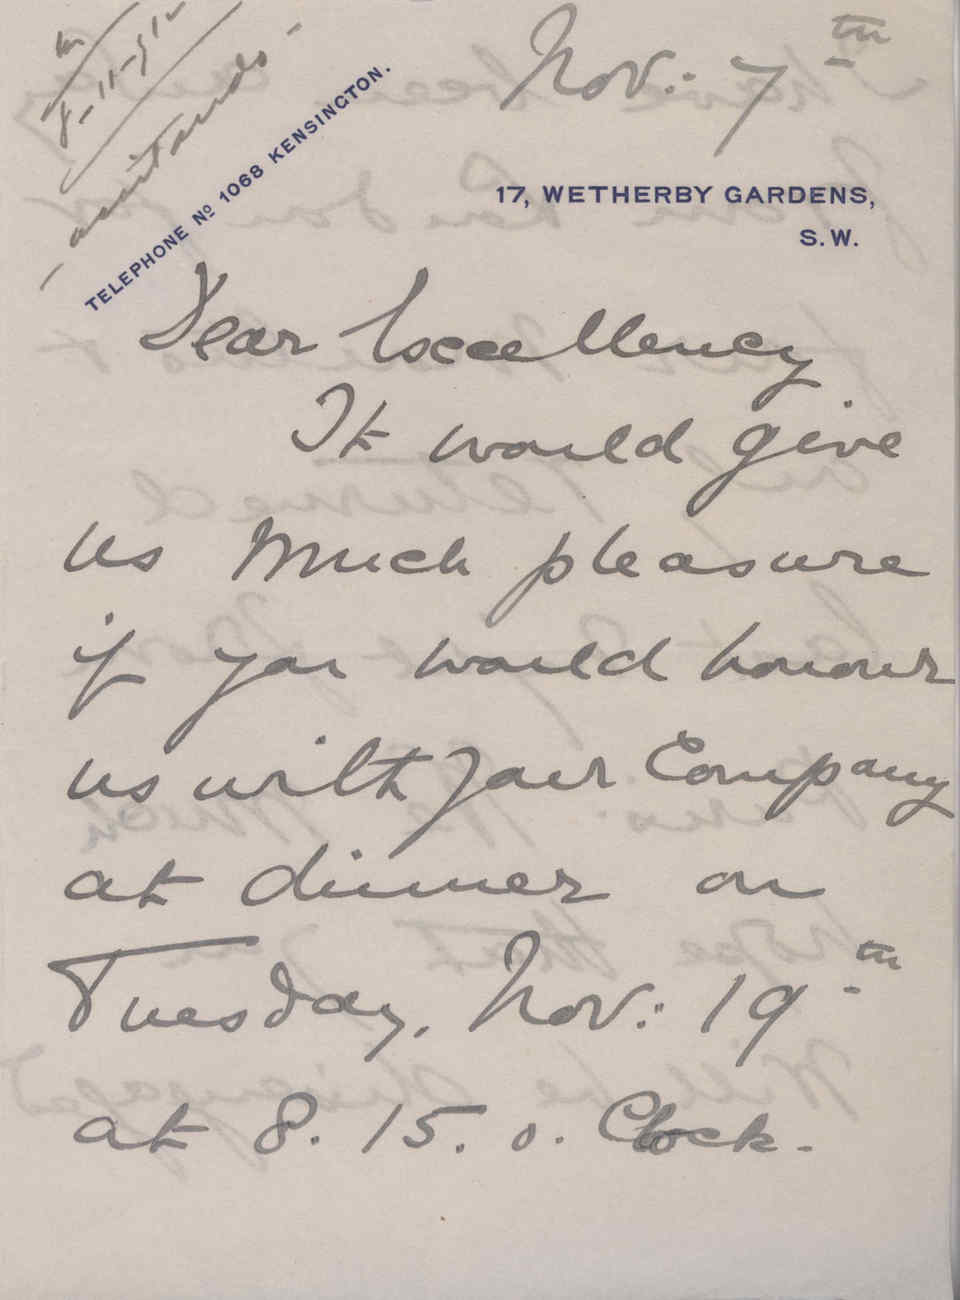 8-11-912
aceitando
TELEPHONE Nº 1068 KENSINGTON.
Nov: 7th
17, WETHERBY GARDENS,
S.W.
Dear Excellency
It would give
us much pleasure
if you would honour
us with your Company
at dinner on
Tuesday, Nov: 19th
at 8.15. o. Clock-